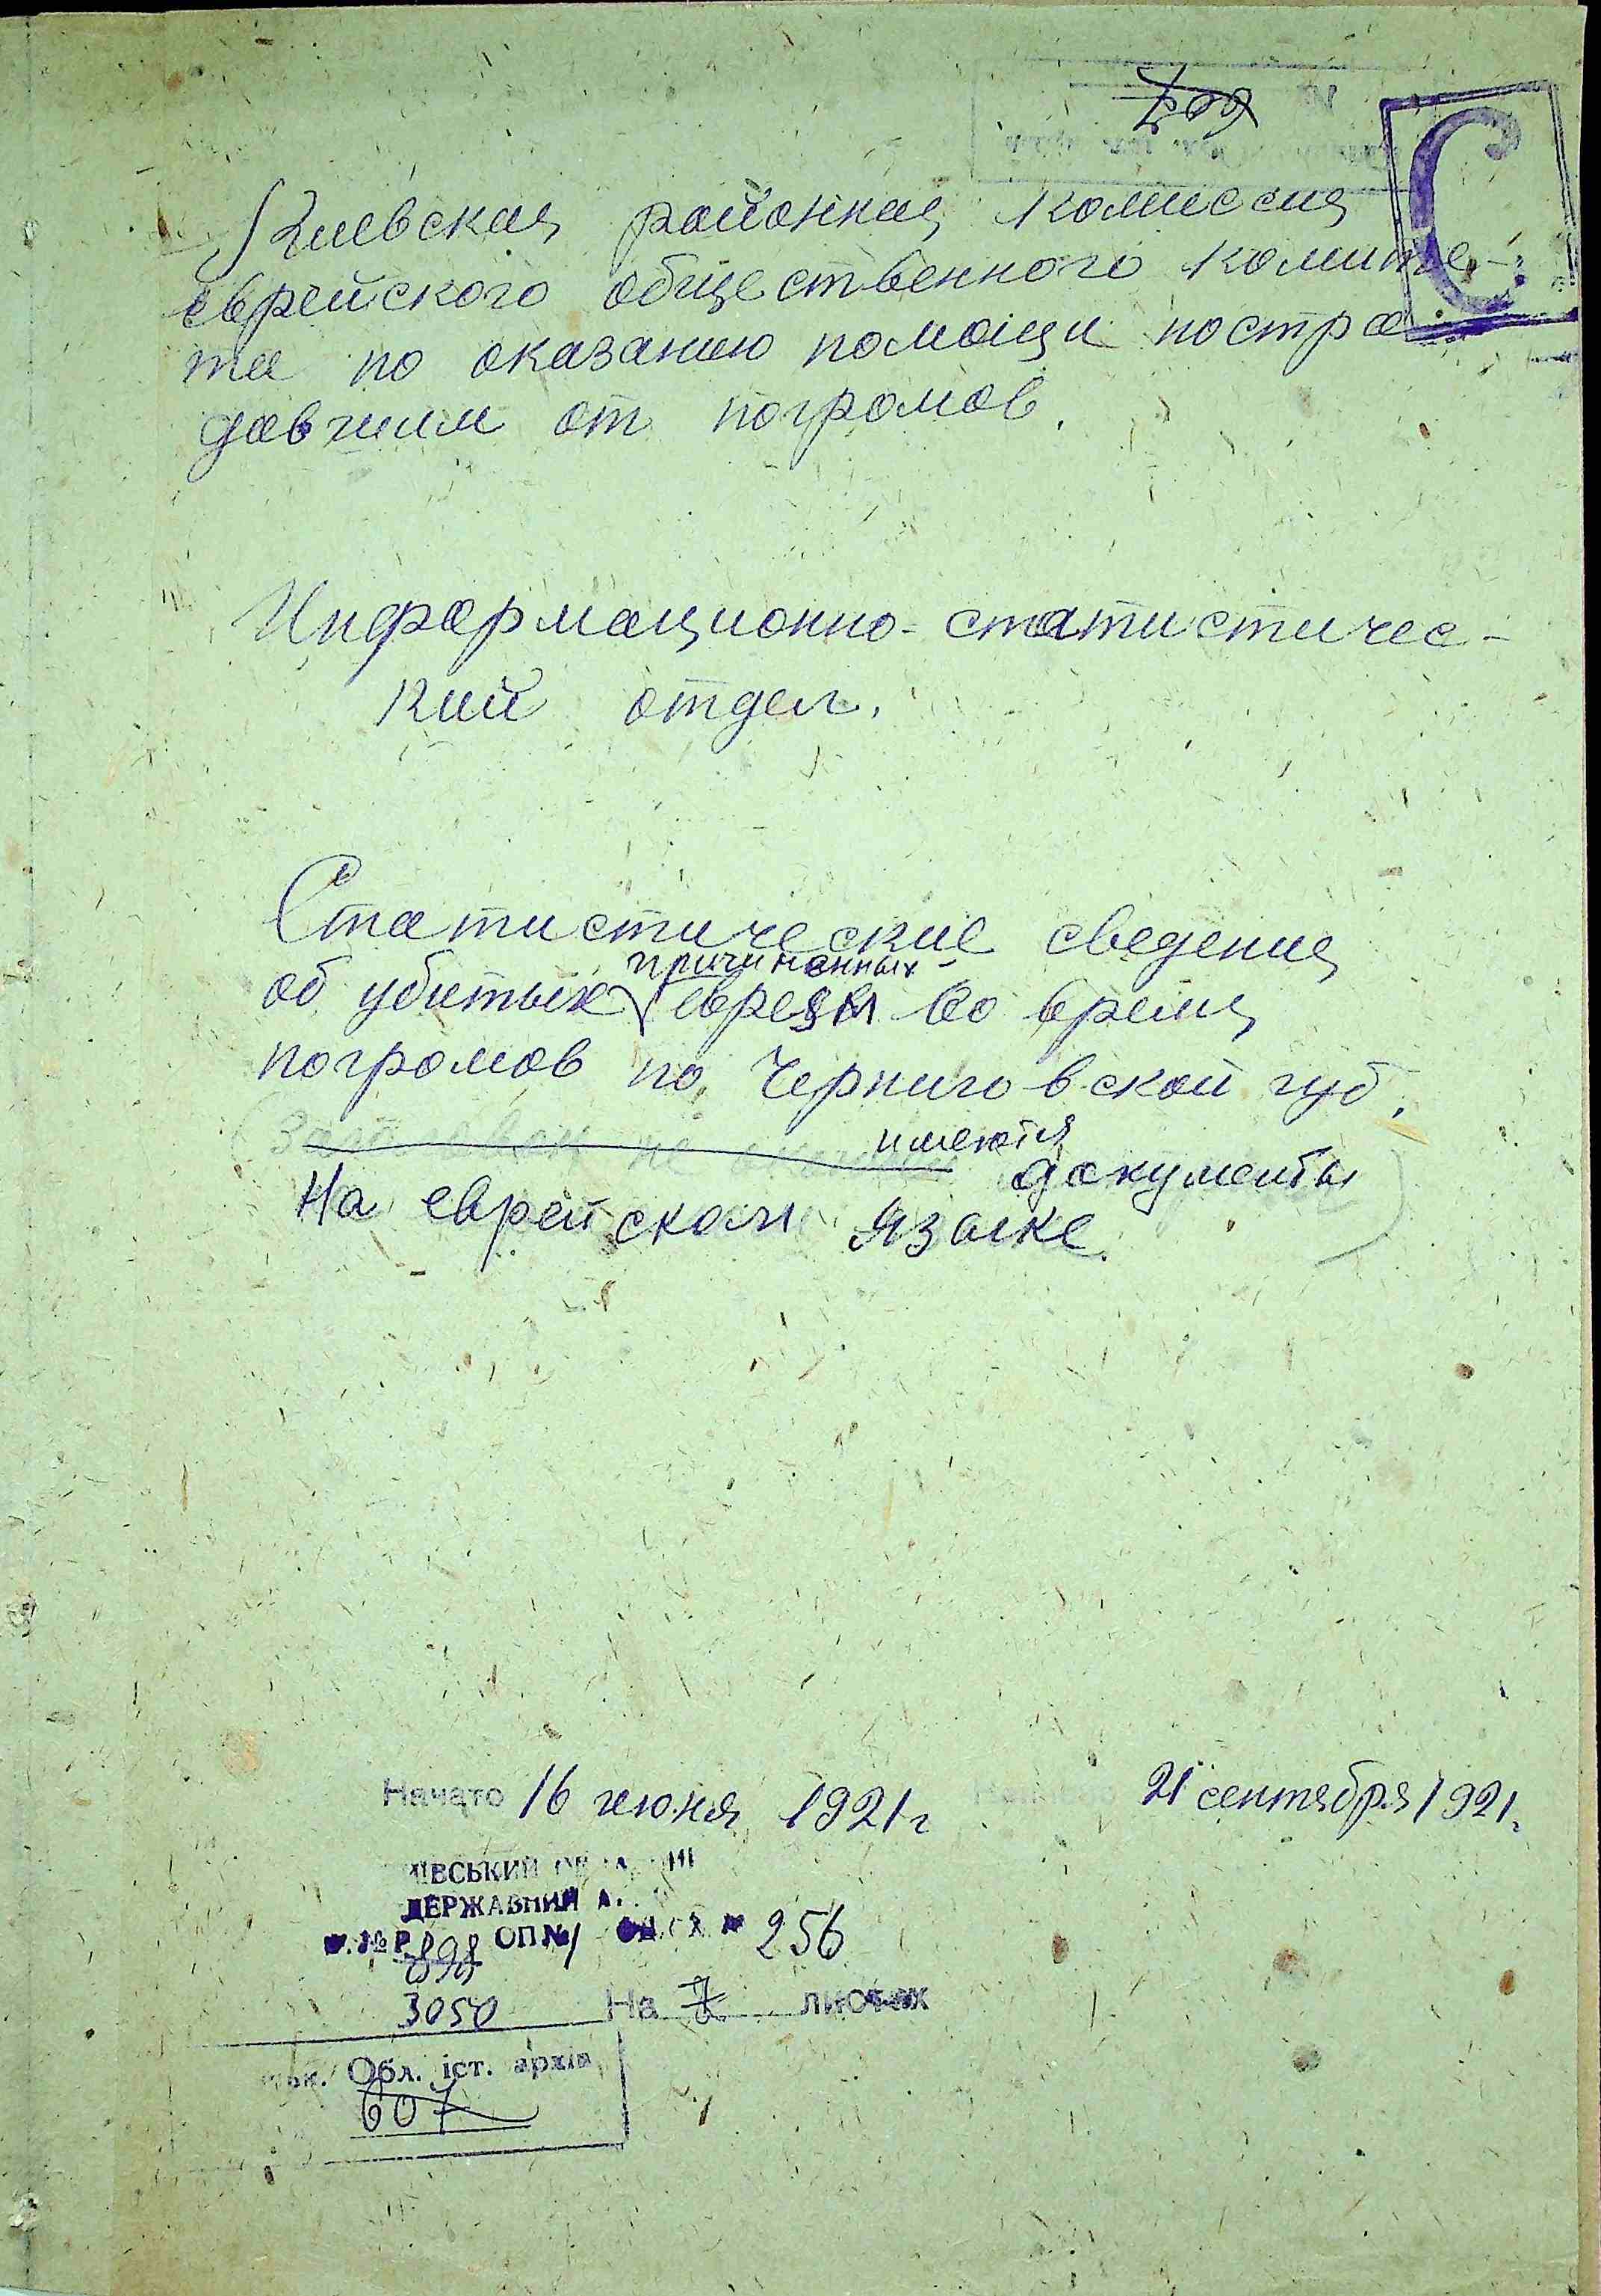 607
С
Киевская районная комиссия
еврейского общественного комите-
та по оказанию помощи постра
давшим от погромов.
Информационно-статистичес-
кий отдел.
Статистические сведения
причиненных
об убитых евреям во время
погромов по Черниговской губ.
имеются
документы
На еврейском языке.
Начато 16 июня 1921 г
21 сентября 1921.
ДЕРЖАВНИЙ А.
Р 898 ОП №1 256
3050 На 7 листах
Обл. іст. архів
607